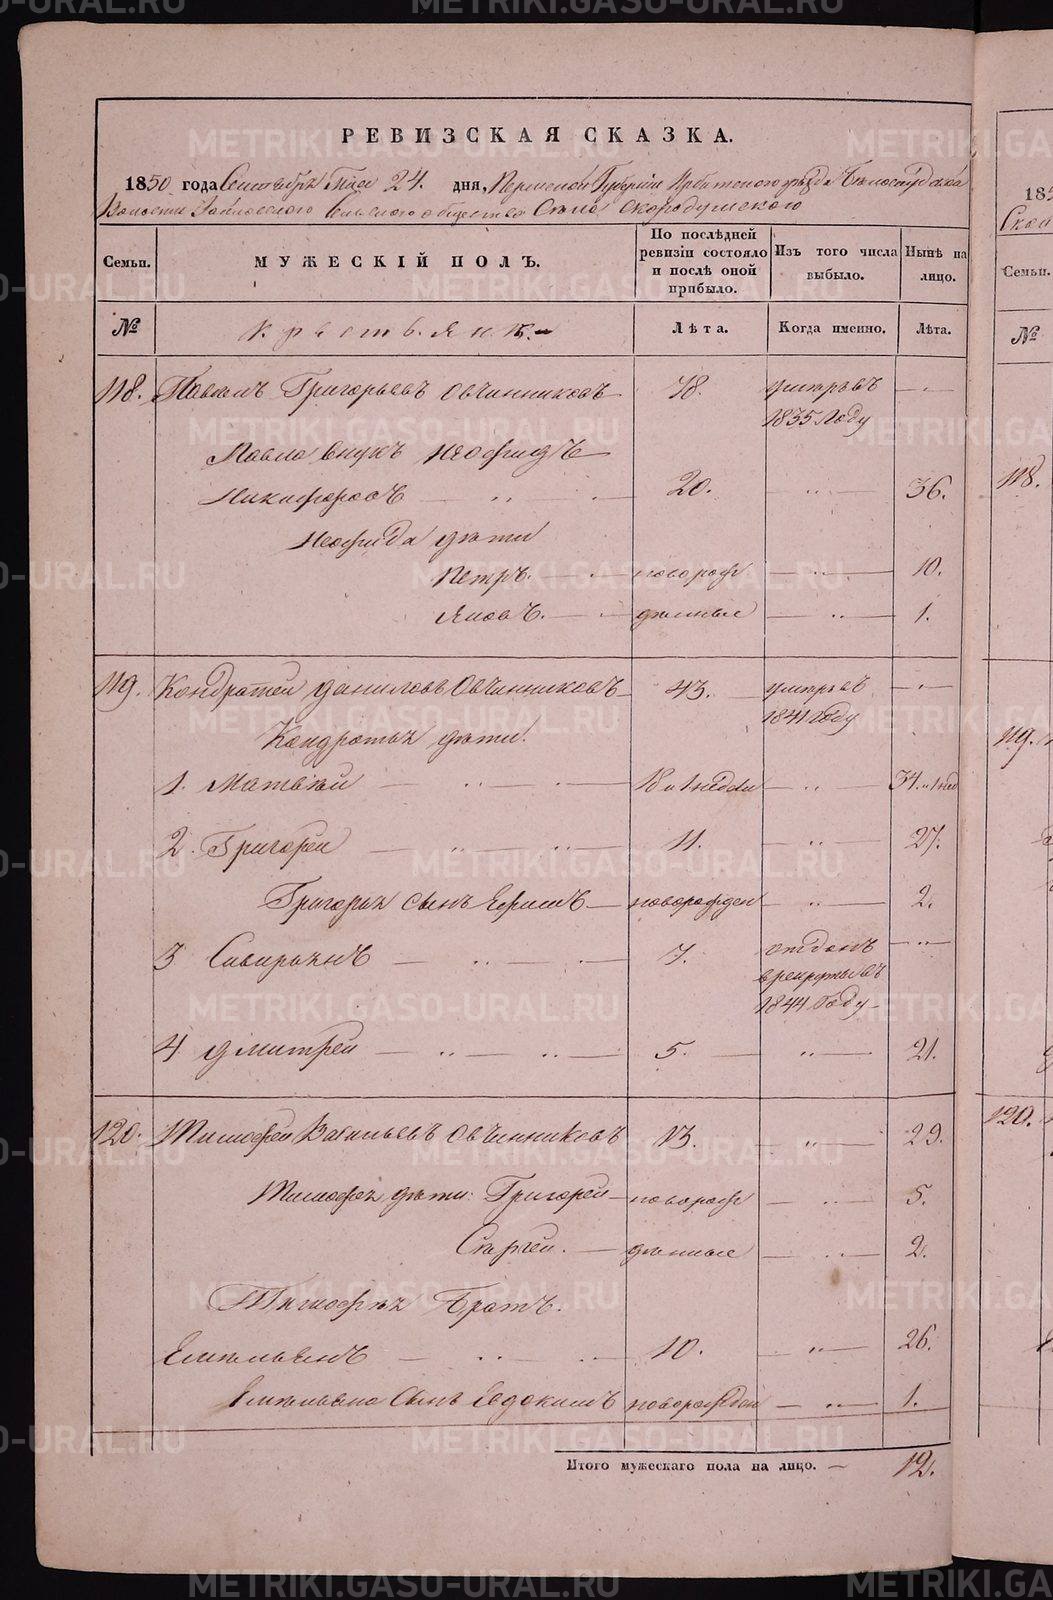 METRIKI.GASO-URAL.RU
РЕВИЗСКАЯ СКАЗКА.
1850 года Сентября Мца 24. дня, Пермской Губерніи Ирбитского уѣзда Бѣлослудской
Волости сельского общества Села Скородумского
Семьи.
МУЖЕСКІЙ ПОЛЪ.
По послѣдней ревизіи состояло и послѣ оной прибыло.
Изъ того числа выбыло.
Нынѣ на лицо.
№
Крестьянъ
Лѣта.
Когда именно.
Лѣта.
118. Павелъ Григорьевъ Овчинниковъ 78. умеръ въ 1835 Году
Павла внукъ Неофидъ
Никифоровъ 20. 36.
Неофида дѣти
Петръ. новорож 10.
Яковъ. дѣнные 1.
119. Кондратей Даниловъ Овчинниковъ 43. умеръ въ 1841 году
Кондратья дѣти.
1. Матвѣй 18 и 1 недѣли 34. и 1 нед
2. Григорей 11. 27.
Григорья сынъ Ефимъ новорожден 2.
3 Савирьянъ 7. отданъ в рекруты въ 1844 Году
4 Дмитрей 5. 21.
120. Тимофей Васильевъ Овчинниковъ 13. 29.
Тимофея дѣти: Григорей новорож 5.
Сергей. дѣнные 2.
Тимофея Братъ.
Емельянъ 10. 26.
Емельяна Сынъ Евдокимъ новорожден 1.
Итого мужескаго пола на лицо. 12.
185
Семьи.
№
118.
119.
120.